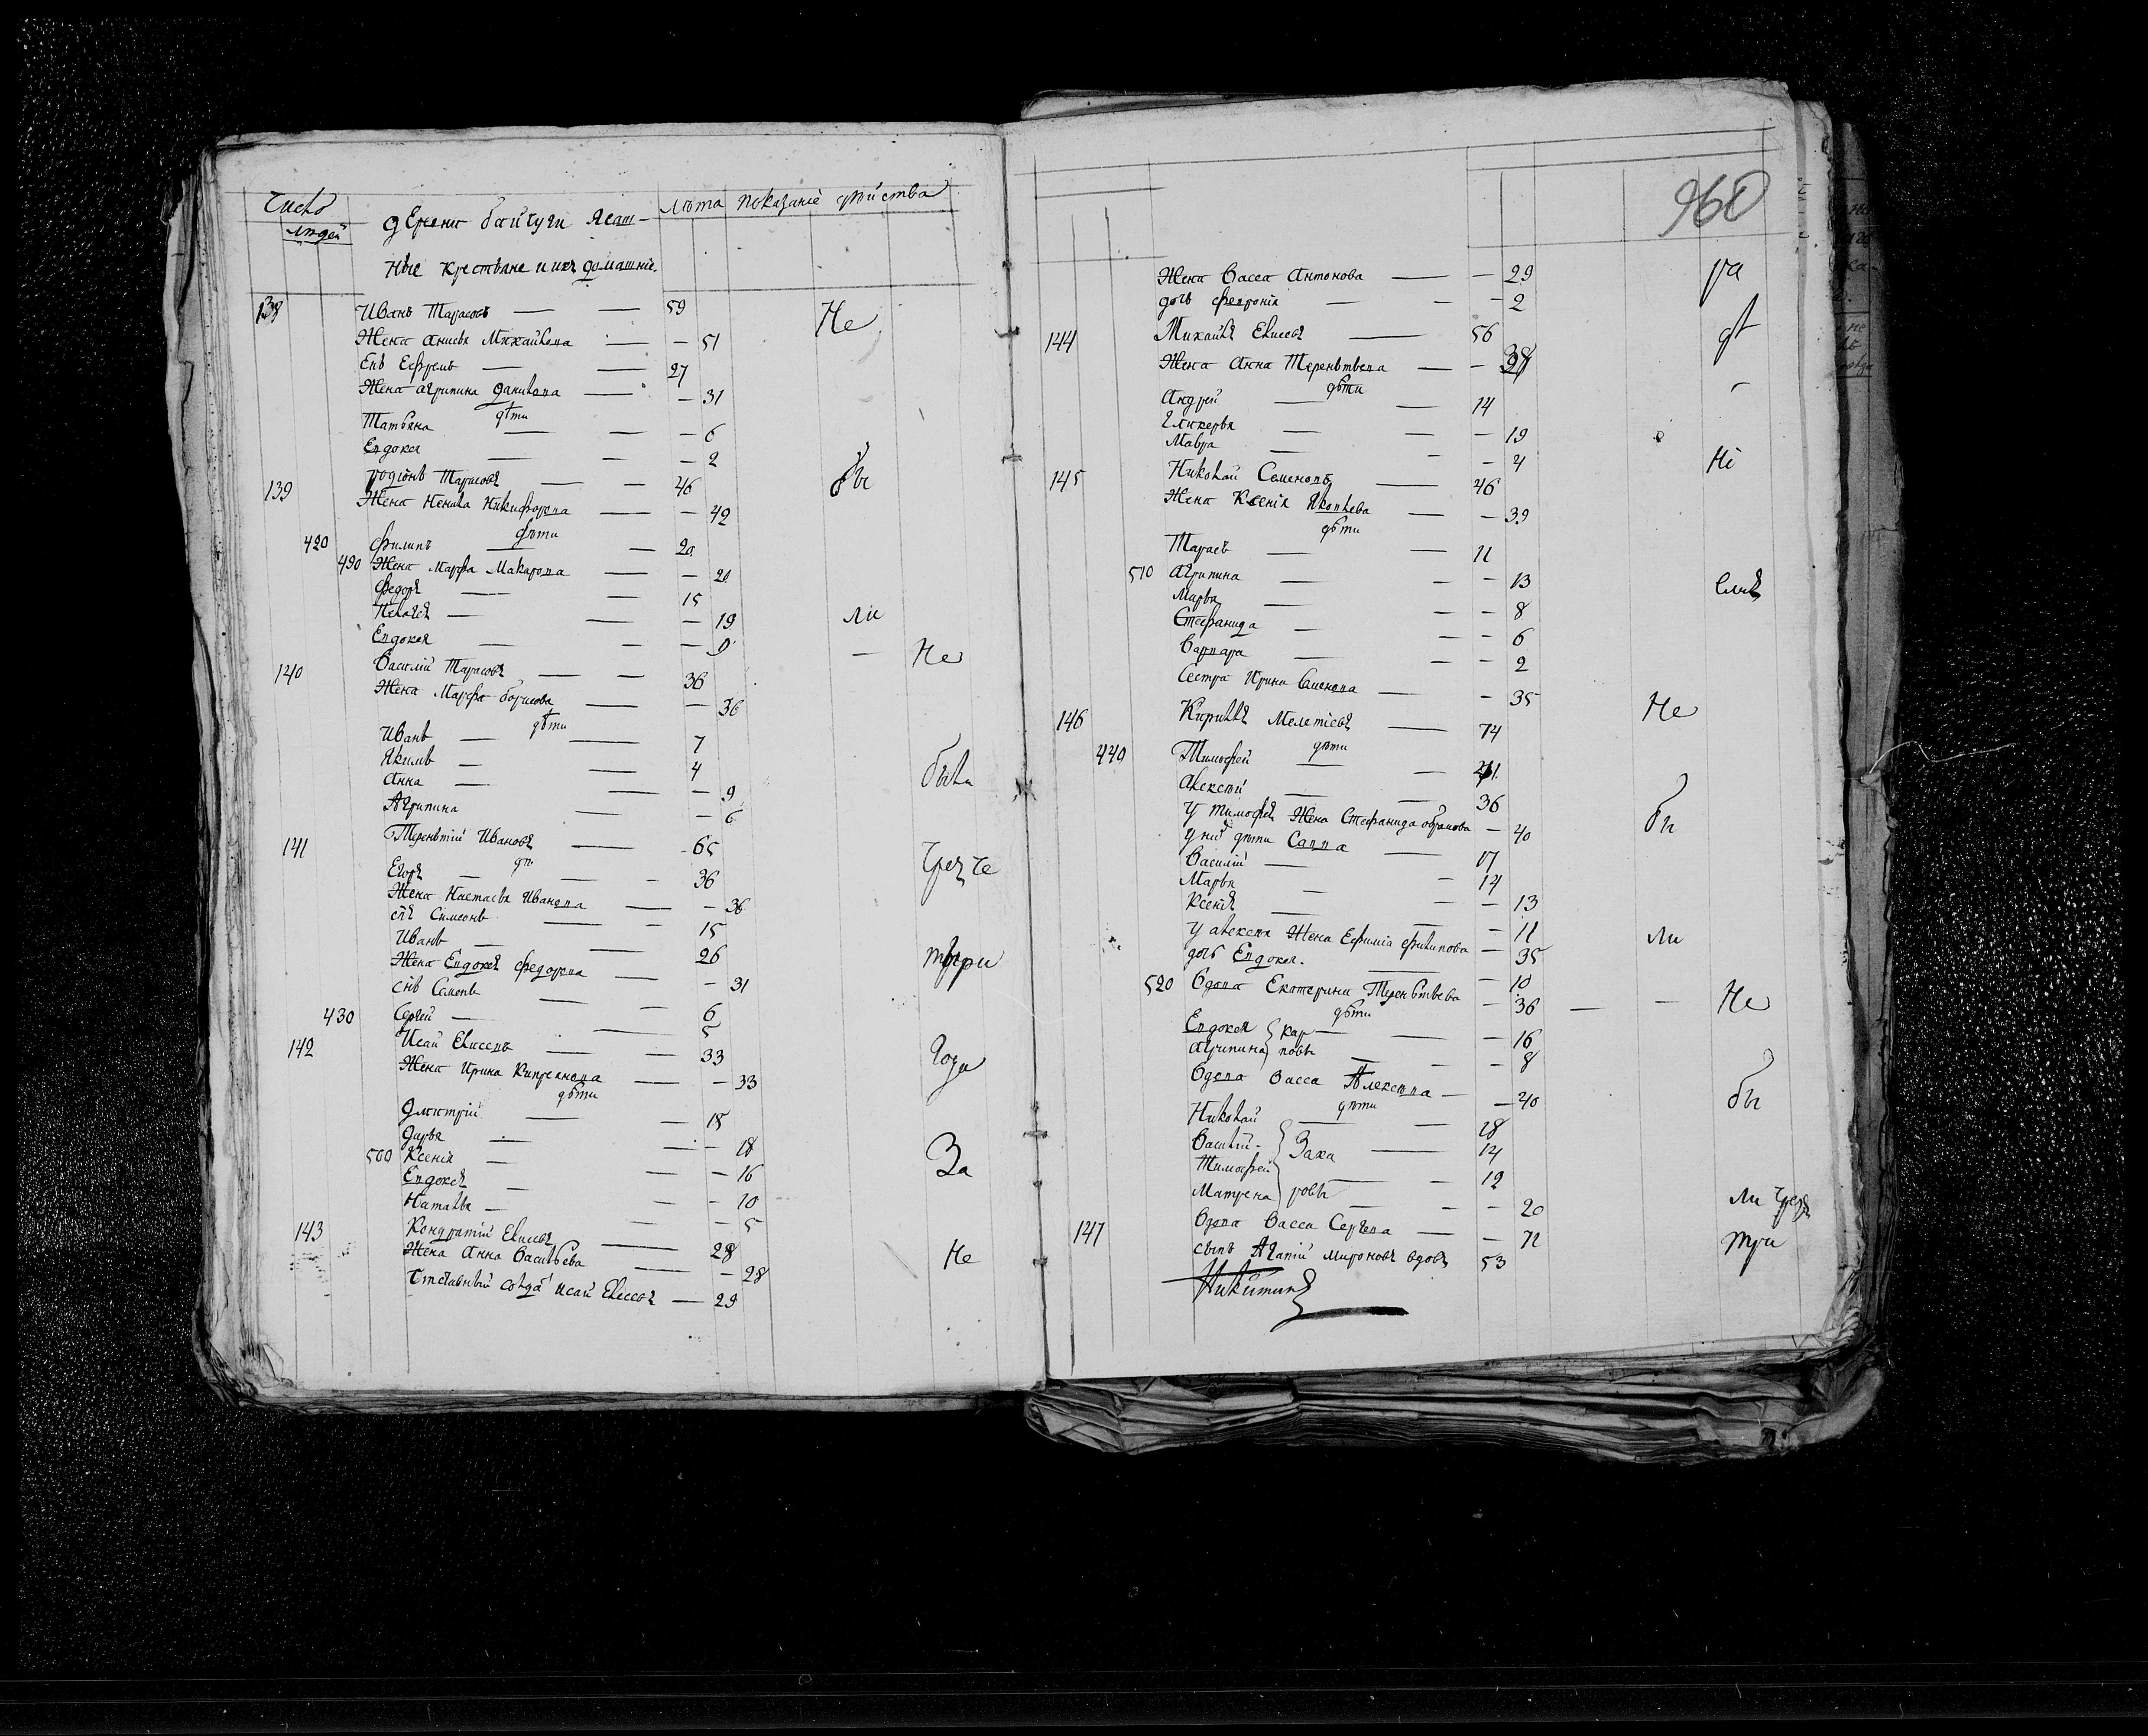 Число
людей
деревни байтуги ясаш-
ные крестьяне и ихъ домашніе.
лѣта показаніе убийства
138 Иванъ Тарасовъ 59 Не
Жена Анисья Михайлова 51
Снъ Ефремъ 27
Жена агрипина данилова 31
дѣти
Татьяна 6
Евдокея 2
139 родіонъ Тарасовъ 46 бы
Жена Ненила Никифорова 42
дѣти
420 филипъ 20
490 Жена Марфа Макарова 20
федоръ 15
Пелагея 19 ли
Евдокея 9 Не
140 Василій Тарасовъ 36
Жена Марфа борисова 36
дѣти
Иванъ 7
Якимъ 4 были
Анна 9
Агрипина 6
141 Терентій Ивановъ 65
дѣ. чрез че
Егоръ 36
Жена Настасья Иванова 36
снъ Симеонъ 15
Иванъ 26 тыри
Жена Евдокея федорова 31
снъ Семенъ 6
430 Сергей 5
142 Исай Елисеевъ 33 Года
Жена Ирина Кипреянова 33
дѣти
Дмитрій 15
Дарья 18
500 Ксенія 16 За
Евдокея 10
Наталья 5
143 Кондратій Елисеевъ 28
Жена Анна Васильева 28 Не
Отставный солда Исай Елесеевъ 29
960
Жена Васса Антонова 29 ра
дочь феврония 2
144 Михайла Елисеевъ 56 дѣ
Жена Анна Терентьева 38
дѣти
Андрей 14
Гликерья 19
Мавра 4
145 Николай Семеновъ 46 Не
Жена Ксенія Яковлева 39
дѣти
Тарасъ 11
510 Агрипина 13
Марья 8
Стефанида 6
Варвара 2
Сестра Ирина Семенова 35
146 Кирилла Мелетіевъ 74 Не
дѣти
440 Тимофей 41
Алексѣй 36
у Тимофея Жена Стефанида 40 бы
у ней дѣти Савва 17
Василій 14
Марья 13
Ксенія 11
у алексея Жена Ефимія филипова 35 ли
дочь Евдокея. 10
520 Вдова Екатерина Терентьева 36 Не
дѣти
Евдокея кар 16
Агрипина повы 8
Вдова Васса Алексеева 40 бы
дѣти
Николай 18
Василій Заха 14
Тимофей 12
Матрена ровы 20 ли чрезъ
147 Вдова Васса Сергеева 72 три
сынъ Агапій мироновъ вдовъ 53
Никитинъ